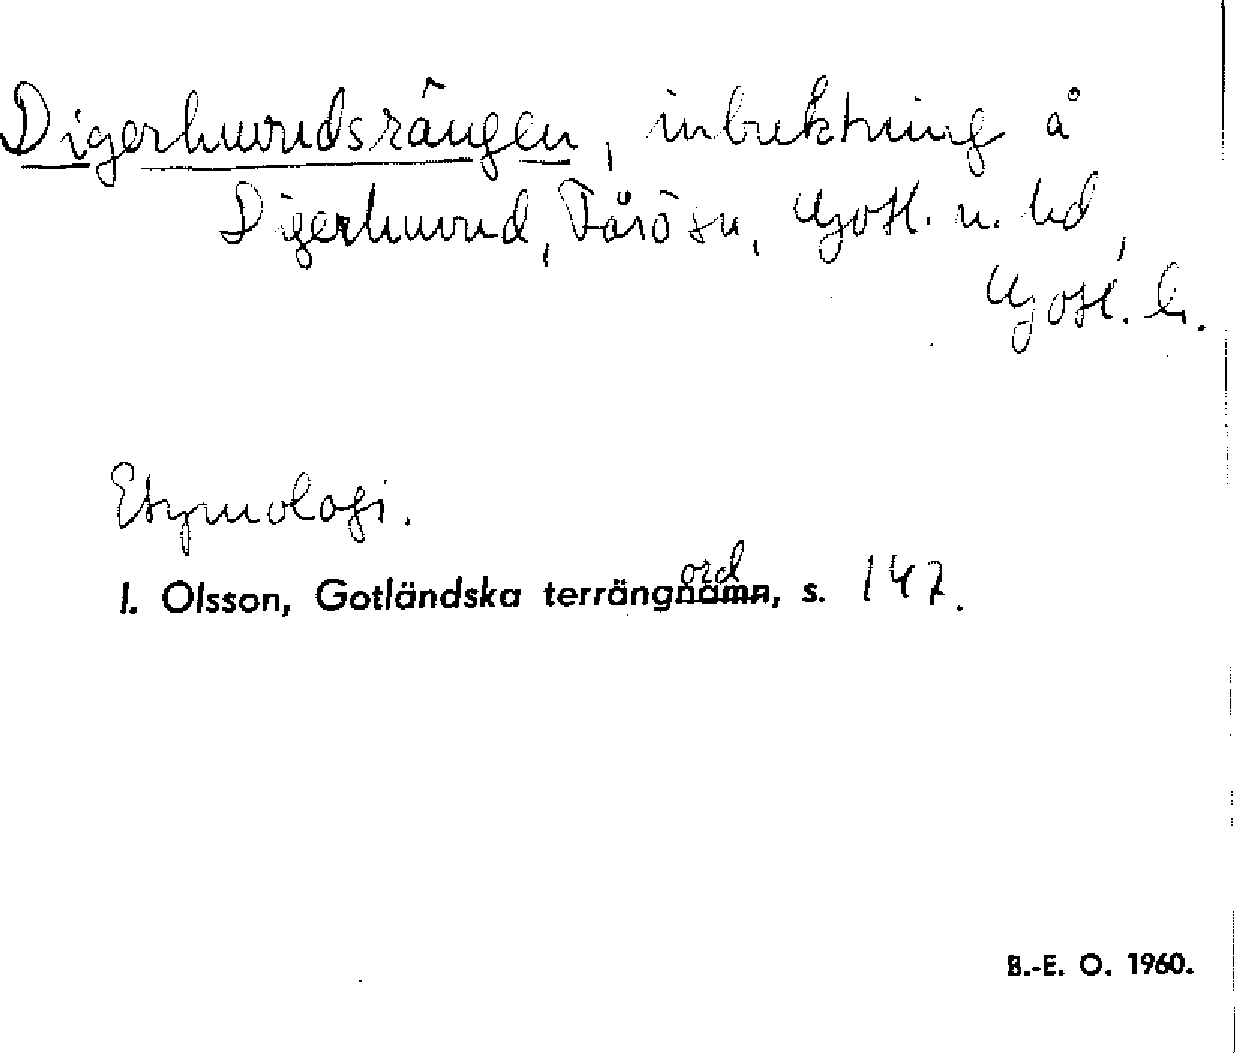 Digerhuvudsrângen, inbuktning å
Digerhuvud, Fårö sn, Gotl. n. hd,
Gotl. l.
Etymologi.
I. Olsson, Gotländska terrängnamn, s. 147.
ord
B.-E. O. 1960.